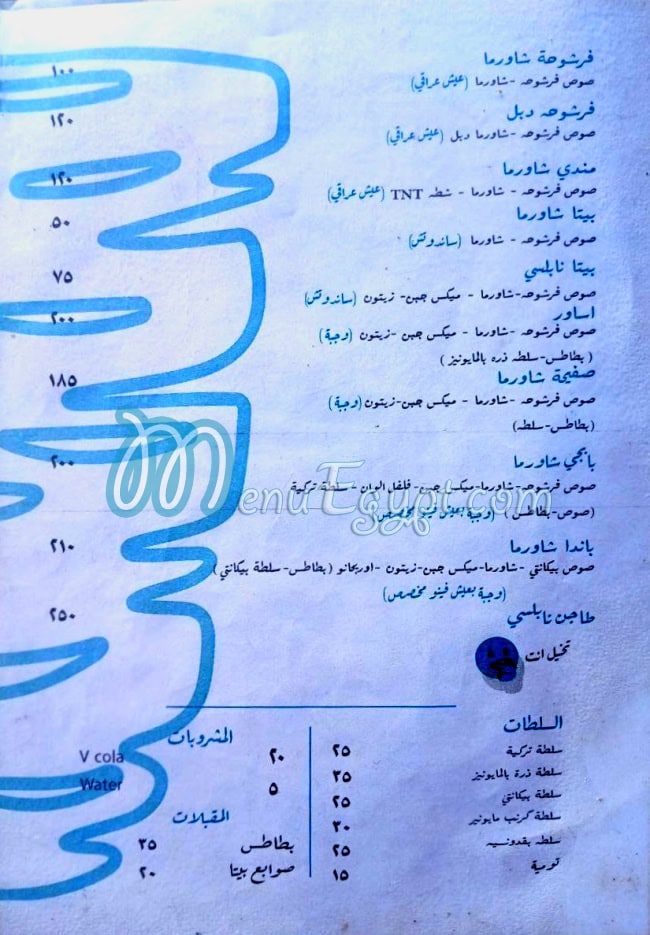 فرشوحة شاورما
١٠٠
صوص فرشوحه -شاورما (عيش عراقي)
فرشوحه دبل
١٢٠
صوص فرشوحه -شاورما دبل (عيش عراقي)
مندي شاورما
١٢٠
صوص فرشوحه - شاورما - شطه TNT (عيش عراقي)
بيتا شاورما
٥٠
صوص فرشوحه - شاورما (ساندوتش)
بيتا نابلسي
٧٥
صوص فرشوحه-شاورما - ميكس جبن- زيتون (ساندوتش)
اساور
٢٠٠
صوص فرشوحه -شاورما - ميكس جبن -زيتون (وجبة)
(بطاطس-سلطه ذره بالمايونيز)
صفيحة شاورما
١٨٥
صوص فرشوحه -شاورما - ميكس جبن-زيتون (وجبة)
(بطاطس-سلطه)
بانجي شاورما
٢٠٠
صوص فرشوحه-شاورما-ميكس جبن- فلفل الوان - سلطة تركية
(صوص-بطاطس) (وجبة بعيش فينو محمص)
MenuEgypt.com
باندا شاورما
٢١٠
صوص بيكانتي -شاورما-ميكس جبن-زيتون -اوريجانو (بطاطس- سلطة بيكانتي)
(وجبة بعيش فينو محمص)
طاجن نابلسي
٢٥٠
تخيل انت
السلطات
سلطة تركية ٢٥
سلطة ذرة بالمايونيز ٣٥
سلطة بيكانتي ٢٥
سلطة كرنب مايونيز ٣٠
سلطه بقدونسيه ٢٥
تومية ١٥
المشروبات
V cola ٢٠
Water ٥
المقبلات
بطاطس ٣٥
صوابع بيتا ٢٠